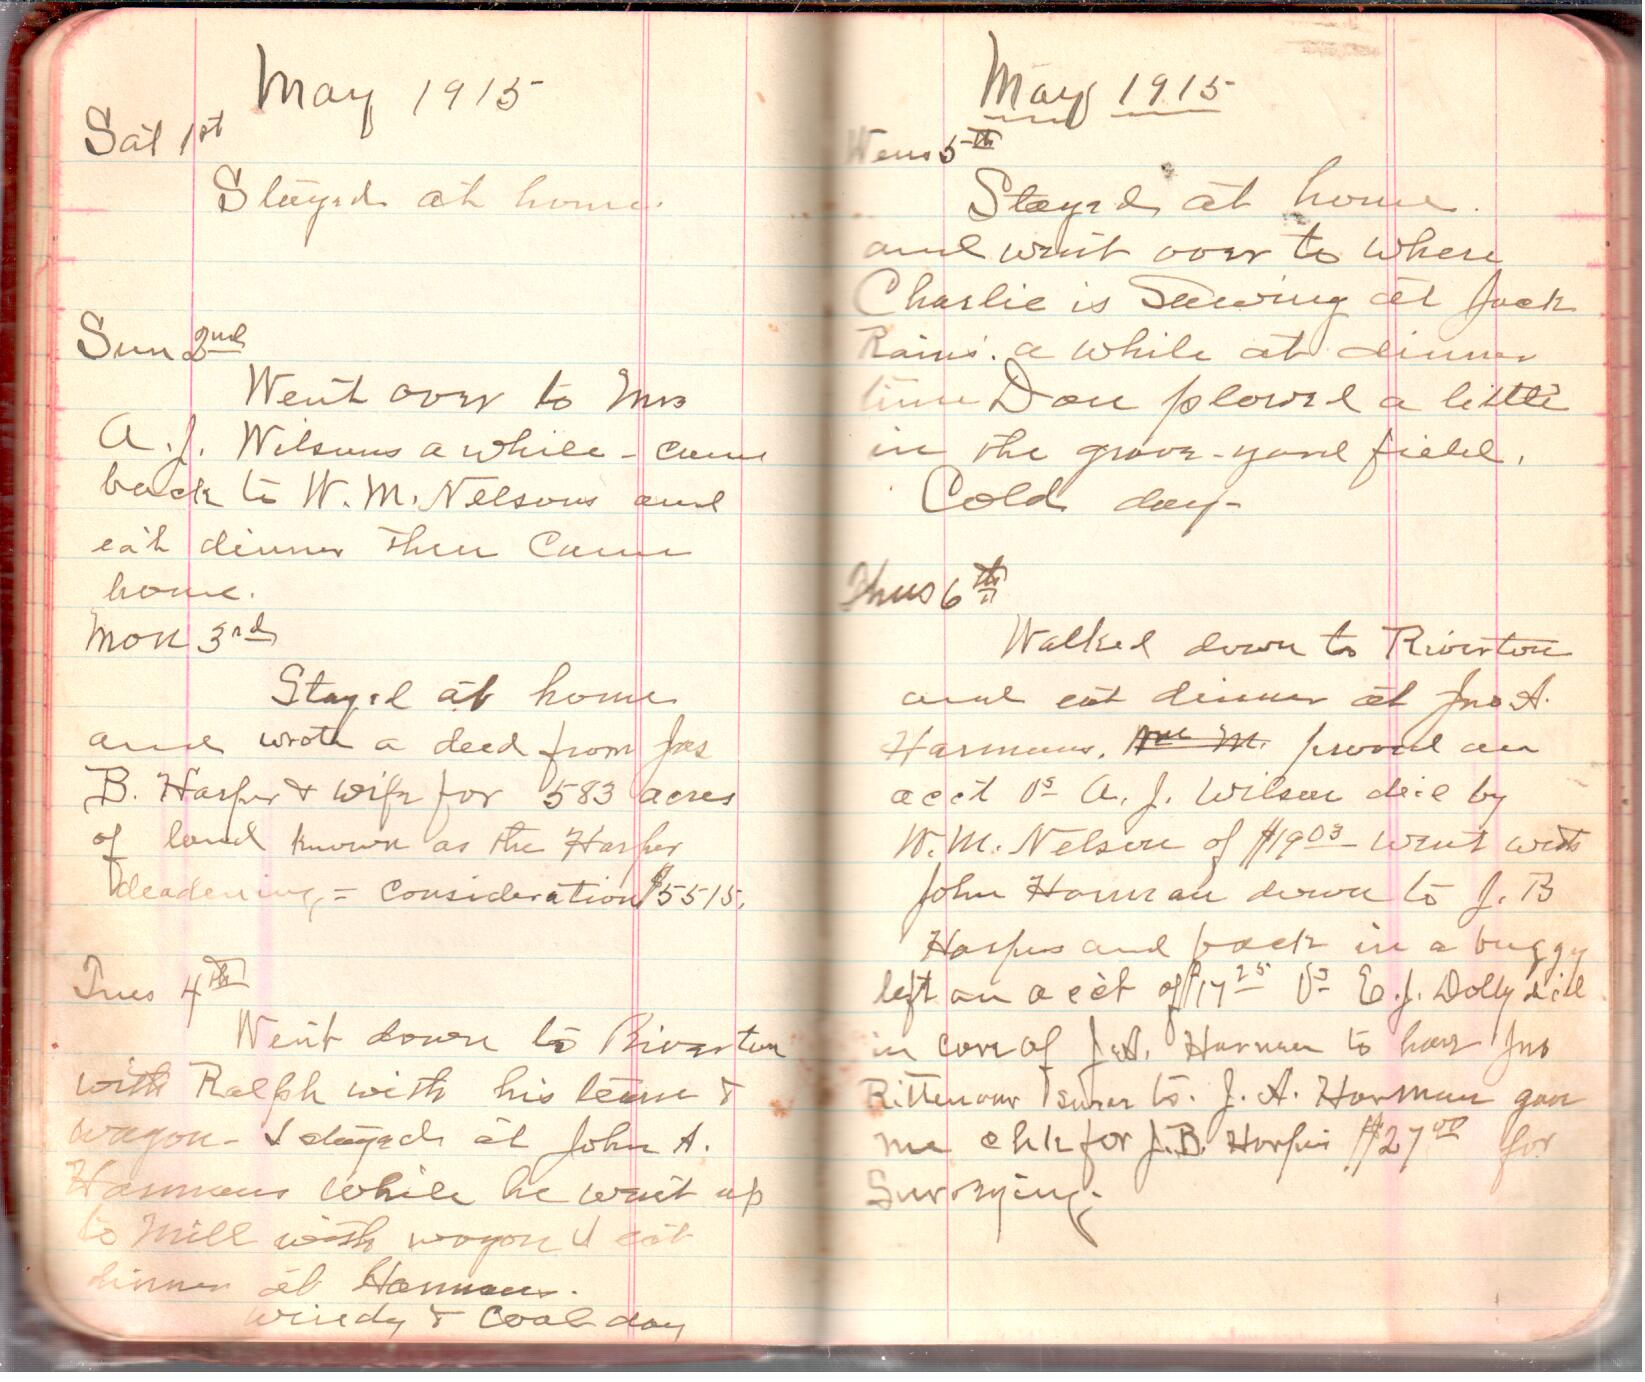 May 1915
Sat 1st
Stayed at home.
Sun 2nd
Went over to Mrs
A. J. Wilsons a while - came
back to W. M. Nelsons and
eat dinner then came
home.
Mon 3rd
Stayed at home
and wrote a deed from Jas
B. Harper & wife for 583 acres
of land known as the Harper
deadening = consideration $5515.
Tues 4th
Went down to Riverton
with Ralph with his team &
wagon - I stayed at John A.
Harmans while he went up
to Mill with wagon & eat
dinner at Harmans.
Windy & Cool day
May 1915
Wens 5th
Stayed at home.
and went over to where
Charlie is Sawing at Jack
Rains. a while at dinner
time Don plowed a little
in the grave-yard field.
Cold day-
Thus 6th
Walked down to Riverton
and eat dinner at Jno A.
Harmans. Wm M. proved an
acct vs A. J. Wilson dec'd by
W. M. Nelson of $19 03 - went with
John Harman down to J. B
Harpers and back in a buggy
left an acct of $17 25 vs E. J. Dolly
in care of J. A. Harman to have Jno
Rittenour swear to. J. A. Harman gave
me chk for J. B. Harper $27 00 for
Surveying.